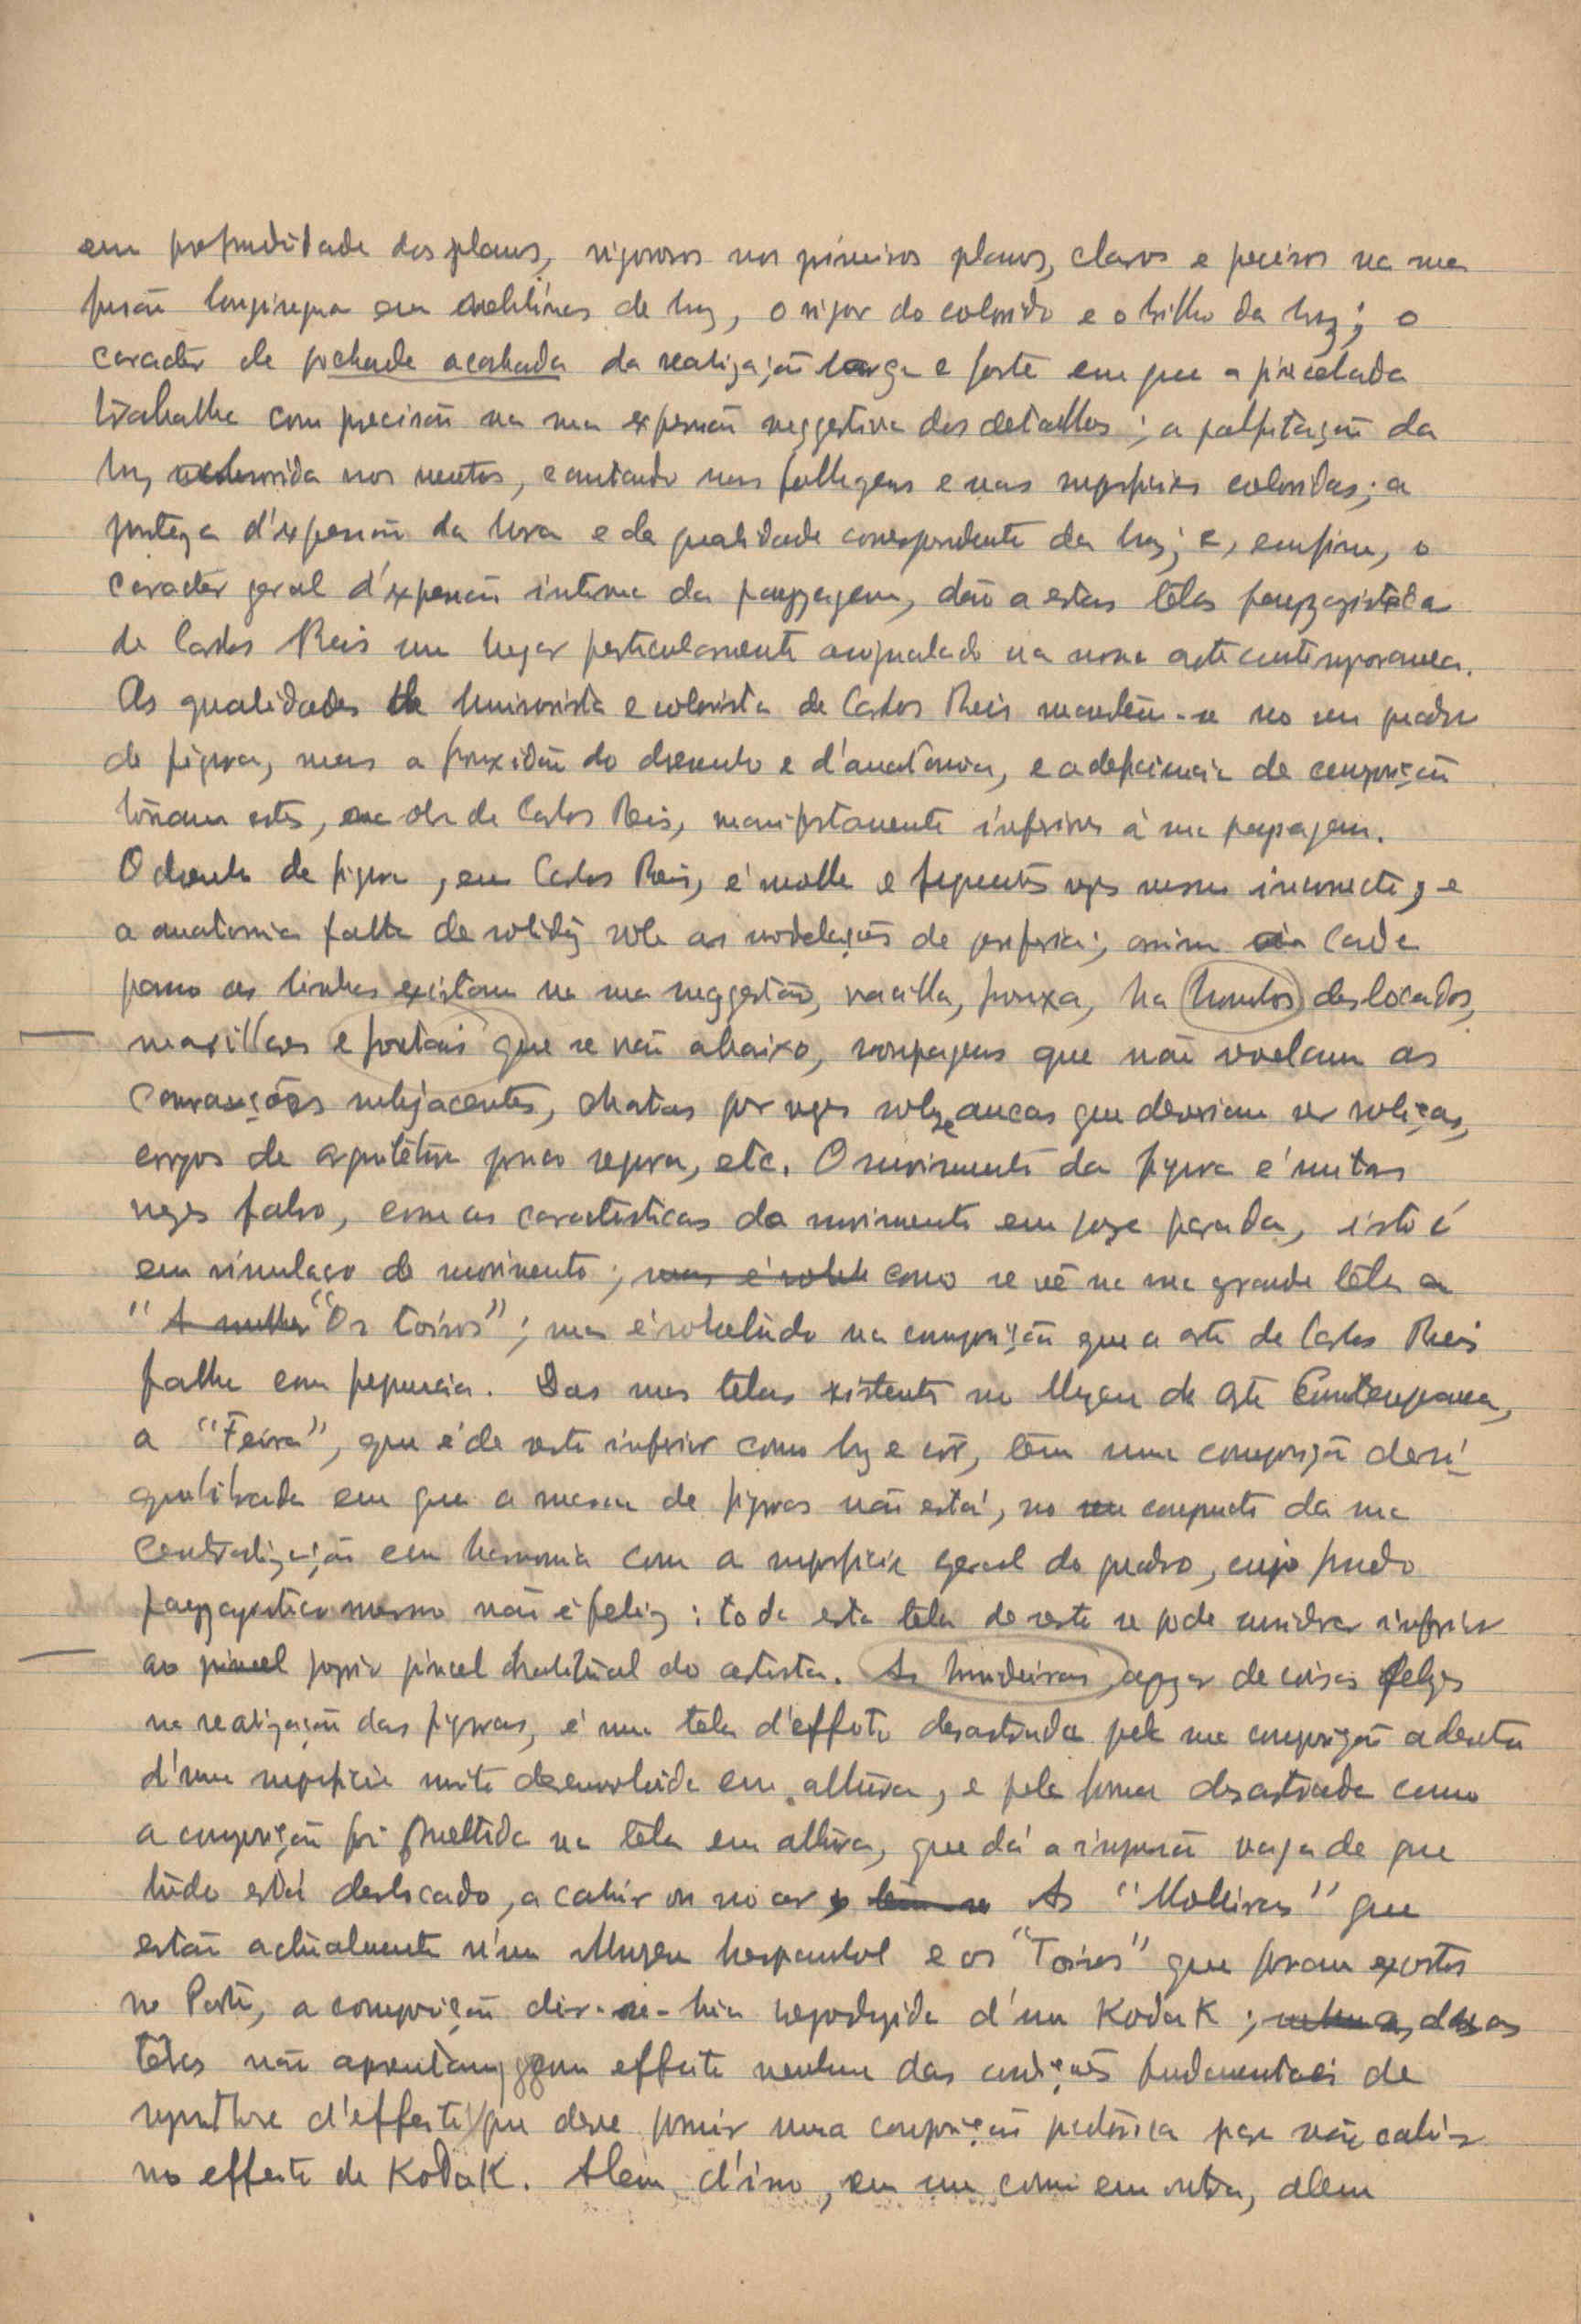 em profundidade dos planos, vigorosos nos primeiros planos, claros e precisos na sua
fusão longinqua em neblinas de luz, o vigor do colorido e o brilho da luz; o
caracter de pochade acabada da realização larga e forte em que a pincelada
trabalha com precisão na sua expressão suggestiva dos detalhes; a palpitação da
luz nos cantando nas folhagens e nas superficies coloridas; a
justeza d'expressão da hora e da qualidade correspondente da luz; e, emfim, o
caracter geral d'expressão intima da payzagem, dão a estas télas payzagistica
de Carlos Reis um lugar particularmente assignalado na nossa arte contemporanea.
As qualidades de luminorista e colorista de Carlos Reis mantêm-se no seu quadro
de figura, mas a frouxidão do desenho e d'anatomia, e a deficiencia de composição
tornam estes, na obra de Carlos Reis, manifestamente inferiores á sua paysagem.
O desenho de figura, em Carlos Reis, é molle e frequentes vezes mesmo incorrecto, e
a anatomia falta de solidez sob as modelações de ; assim cada
passo as linhas existam na sua suggestão, vacilla, frouxa, ha hombros deslocados,
maxillares e frontais que se vão abaixo, roupagens que não modelam as
subjacentes, chatas por vezes sobre ancas que deveriam ser roliças,
corpos de arquitétura pouco segura, etc. O movimento da figura é muitas
vezes falso, com as caracteristicas do movimento em pose parada, isto é
em simulacro de movimento; mas é sobre como se vê na sua grande téla a
"A mulher "Os toiros"; mas é sobretudo na composição que a arte de Carlos Reis
falha com frequencia. Das suas télas existentes no Muzeu de Arte Contemporanea,
a "Feira", que é de resto inferior como luz e côr, têm uma composição dese-
quilibrada em que a massa de figuras não está, no seu conjuncto da sua
centralização em harmonia com a superficie geral do quadro, cujo fundo
payzagistico mesmo não é feliz: toda esta téla de resto se pode considerar inferior
ao pincel proprio pincel habitual do artista. As apezar de coisas felizes
na realização das figuras, é uma tela d'effeito desastrado pela sua composição adentro
d'uma superficie muito desenvolvida em altura, e pela forma desastrada como
a composição foi mettida na téla em altura, que dá a impressão vaga de que
tudo está deslocado, a cahir ou no ar têm-se As "Molheiras" que
estão actualmente n'um Muzeu hespanhol e os "Toiros" que foram expostos
no Porto, a composição dir-se-hia reproduzida d'um Kodak; duas
télas não apresentam com effeito nenhuma das condições fundamentaes de
d'effeito que deve possuir uma composição pictórica para não cahir
no effeito de KodaK. Alem d'isso, em uma como em outra, alem